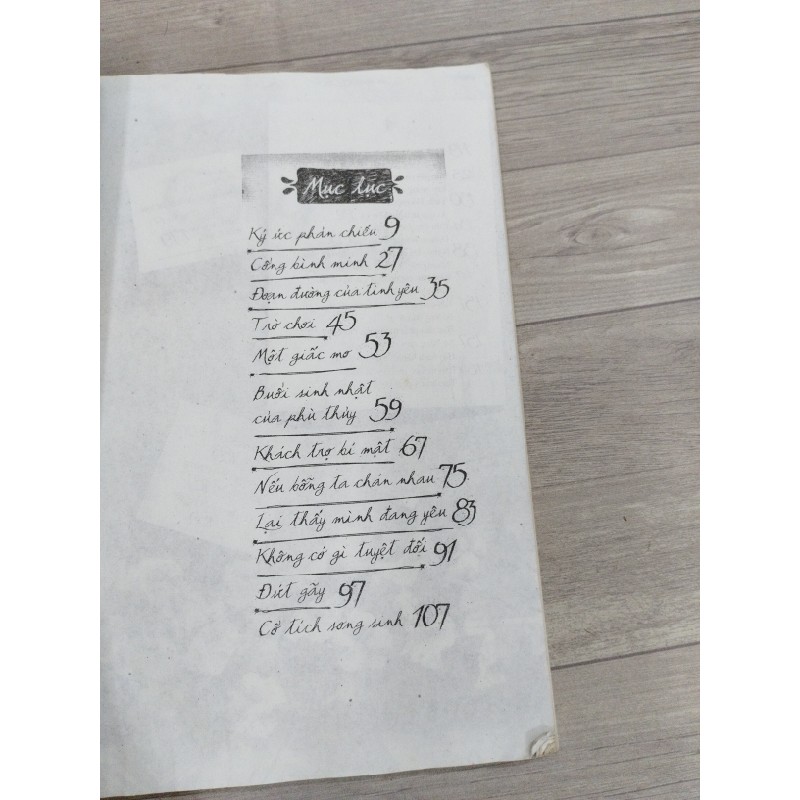 Mục lục
Ký ức phản chiếu 9
Cổng bình minh 27
Đoạn đường của tình yêu 35
Trò chơi 45
Một giấc mơ 53
Buổi sinh nhật
của phù thủy 59
Khách trọ bí mật 67
Nếu bỗng ta chán nhau 75
Lại thấy mình đang yêu 83
Không có gì tuyệt đối 91
Đứt gãy 97
Cổ tích song sinh 107